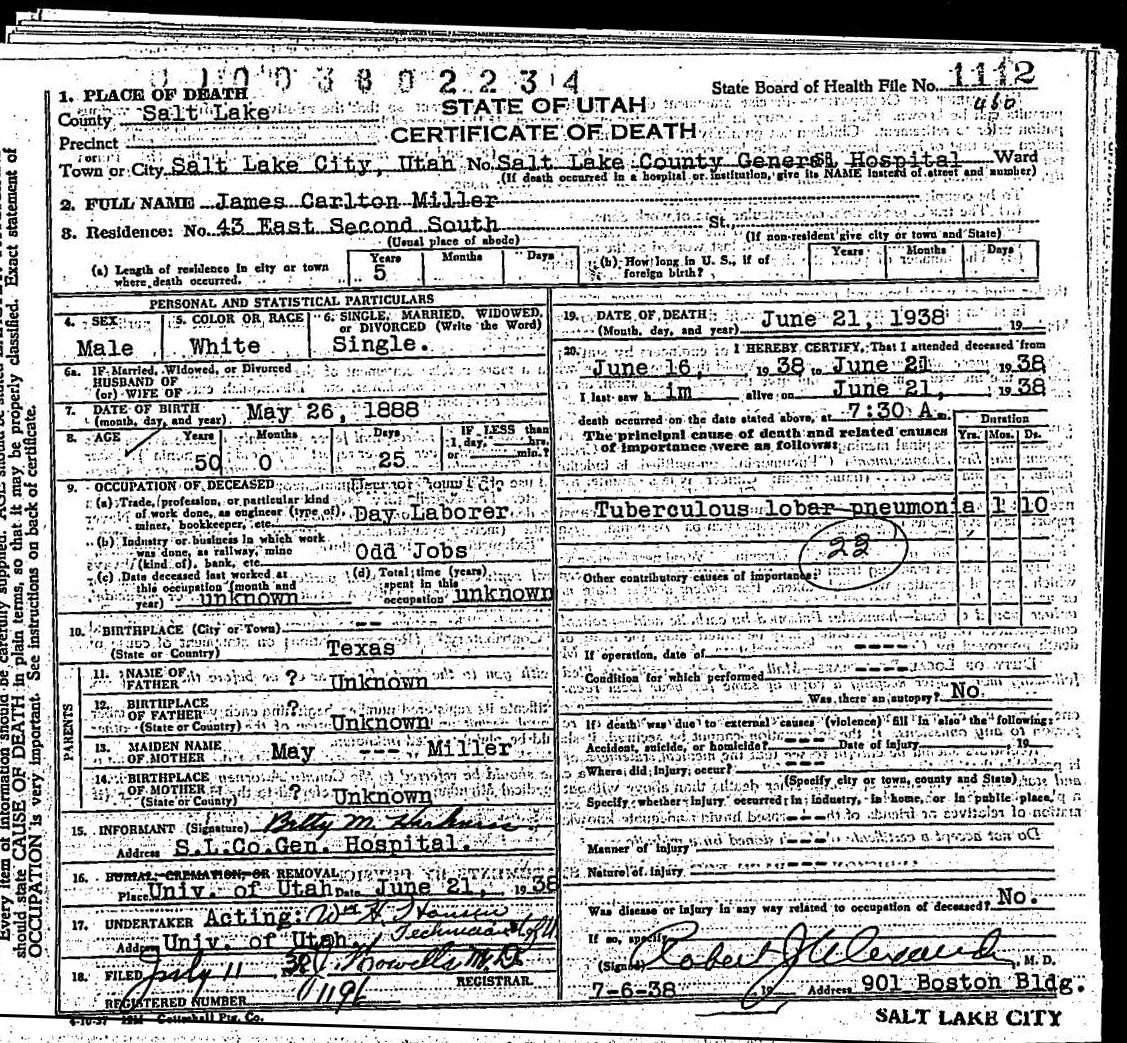 0 1 0 0 3 8 0 2 2 3 4
State Board of Health File No. 1112
460
1. PLACE OF DEATH
County Salt Lake
STATE OF UTAH
CERTIFICATE OF DEATH
Precinct
or
Town or City Salt Lake City, Utah No. Salt Lake County General Hospital Ward
(If death occurred in a hospital or institution, give its NAME instead of street and number)
2. FULL NAME James Carlton Miller
3. Residence: No. 43 East Second South St.,
(Usual place of abode) (If non-resident give city or town and State)
(a) Length of residence in city or town where death occurred. Years 5 Months Days
(b) How long in U. S., if of foreign birth? Years Months Days
PERSONAL AND STATISTICAL PARTICULARS
4. SEX Male
5. COLOR OR RACE White
6. SINGLE, MARRIED, WIDOWED, or DIVORCED (Write the Word) Single.
6a. IF Married, Widowed, or Divorced
HUSBAND OF
(or) WIFE OF
7. DATE OF BIRTH
(month, day, and year) May 26, 1888
8. AGE Years 50 Months 0 Days 25 IF LESS than 1 day, hrs. or min.?
9. OCCUPATION OF DECEASED
(a) Trade, profession, or particular kind
of work done, as engineer (type of), Day Laborer
miner, bookkeeper, etc.
(b) Industry or business in which work
was done, as railway, mine Odd Jobs
(kind of), bank, etc.
(c) Date deceased last worked at
this occupation (month and
year) unknown
(d) Total time (years)
spent in this
occupation unknown
10. BIRTHPLACE (City or Town) --
(State or Country) Texas
PARENTS
11. NAME OF
FATHER ? Unknown
12. BIRTHPLACE
OF FATHER ?
(State or County) Unknown
13. MAIDEN NAME
OF MOTHER May --- Miller
14. BIRTHPLACE
OF MOTHER ?
(State or County) Unknown
15. INFORMANT (Signature) Betty M.
Address S.L.Co.Gen. Hospital.
16. BURIAL, CREMATION, OR REMOVAL
Place Univ. of Utah Date June 21, 1938
17. UNDERTAKER Acting: Wm H. Hansen
Technician U of U
Address Univ. of Utah.
18. FILED July 11 38
M.D.
REGISTRAR.
REGISTERED NUMBER 1196
19. DATE OF DEATH
(Month, day, and year) June 21, 1938 19
20. I HEREBY CERTIFY, That I attended deceased from
June 16, 1938 to June 21 1938
I last saw h im alive on June 21, 1938
death occurred on the date stated above, at 7:30 A.m.
The principal cause of death and related causes
of importance were as follows:
Duration
Yrs. Mos. Ds.
Tuberculous lobar pneumonia 1 10
22
Other contributory causes of importance:
If operation, date of ----
Condition for which performed
Was there an autopsy? No.
If death was due to external causes (violence) fill in also the following:
Accident, suicide, or homicide? --- Date of injury 19
Where did injury occur? ---
(Specify city or town, county and State)
Specify whether injury occurred in industry, in home, or in public place,
---
Manner of injury ---
Nature of injury ---
Was disease or injury in any way related to occupation of deceased? No.
If so, specify
(Signed) Robert J Alexander, M. D.
7-6-38 19 Address 901 Boston Bldg.
SALT LAKE CITY
Every item of information should be carefully supplied. AGE should be stated
should state CAUSE OF DEATH in plain terms, so that it may be properly classified. Exact statement of
OCCUPATION is very important. See instructions on back of certificate.